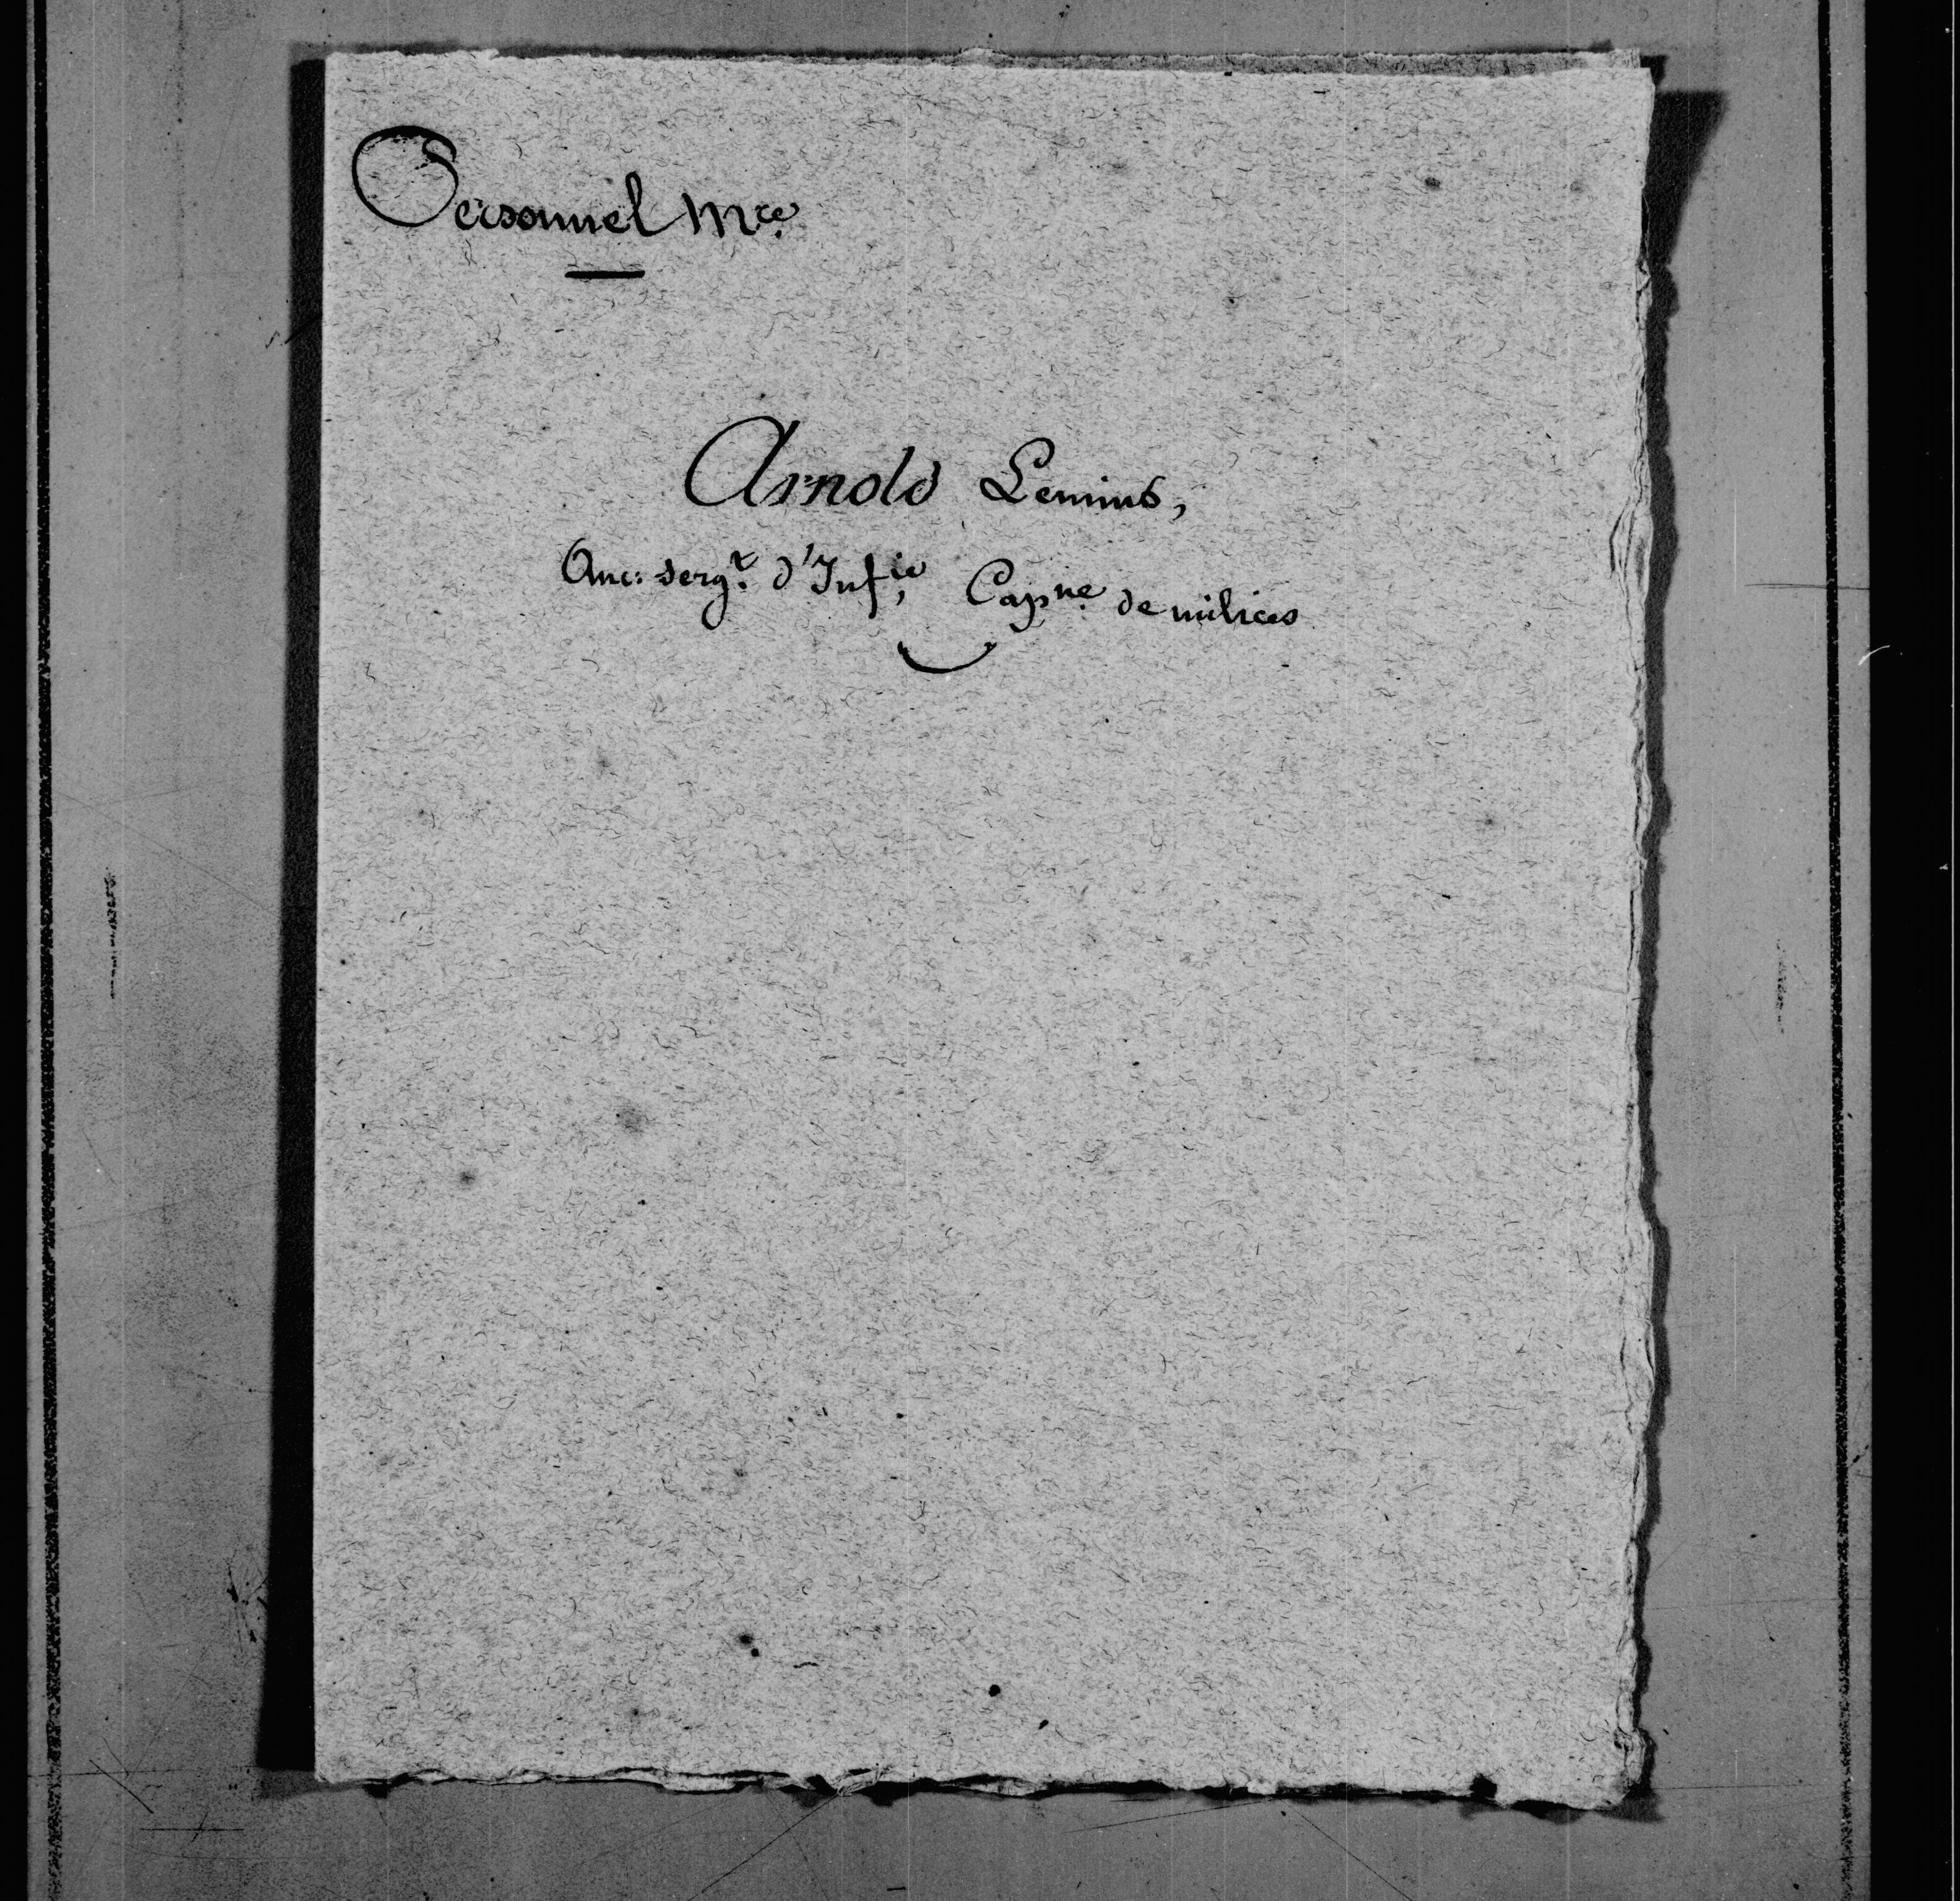 Personnel Mre
Arnold Lemius,
Anc: sergt. d'Infie, Capne de milices